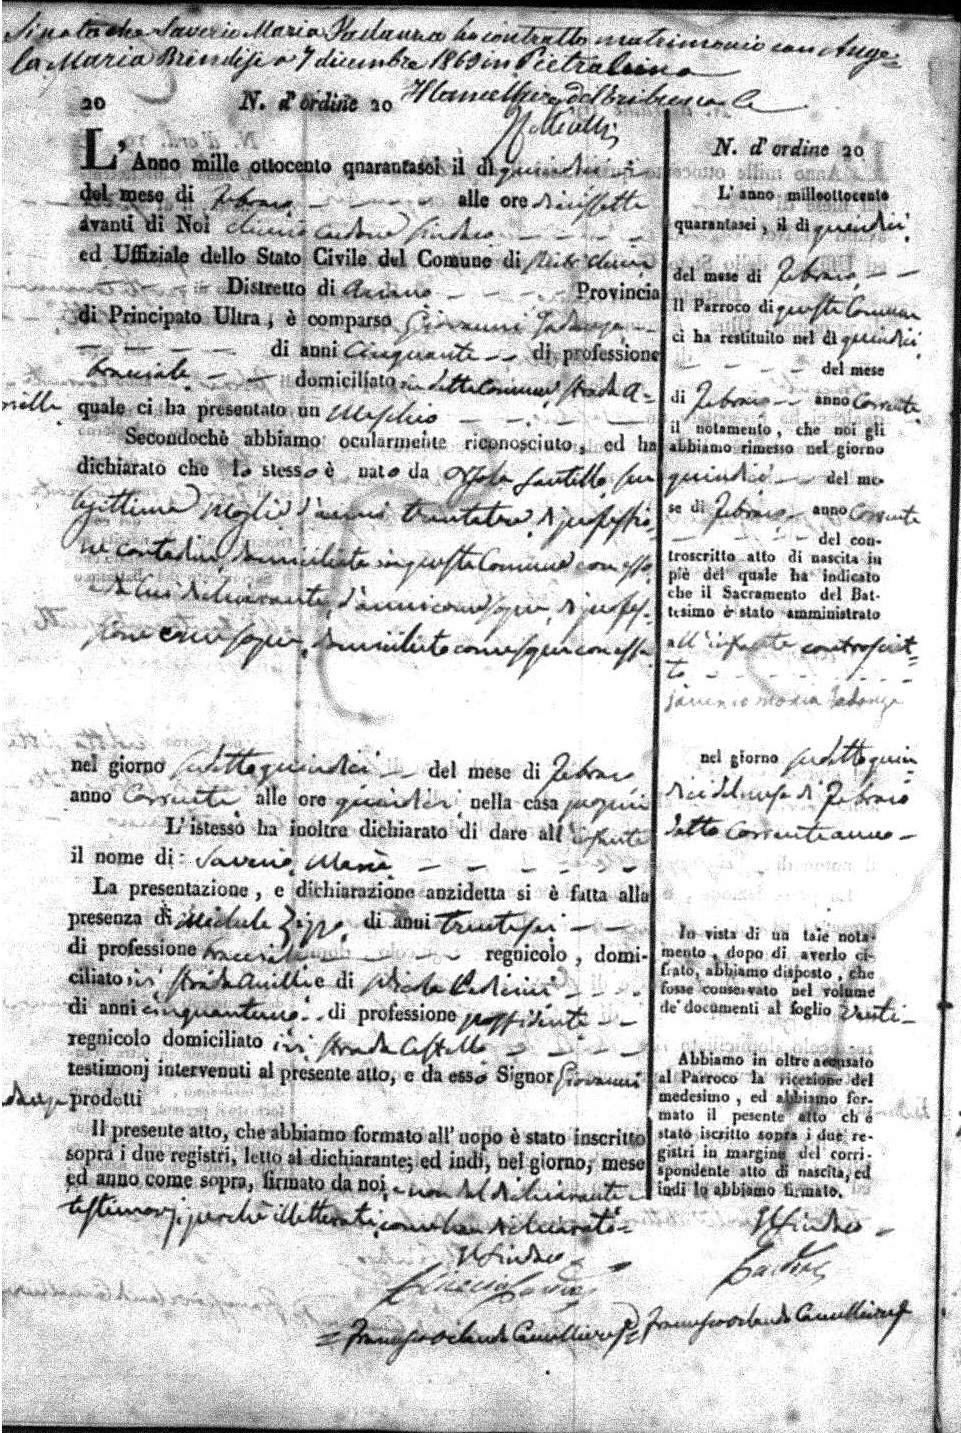 Si nota che Saverio Maria Fadanza ha contratto matrimonio con Ange=
la Maria Brindisi a 7 dicembre 1869 in Pietralcina
Il Cancelliere del tribunale
20 N. d'ordine 20
L'Anno mille ottocento quarantasei il dì quindici
del mese di Febraro alle ore diecissette
avanti di Noi Sindaco
ed Uffiziale dello Stato Civile del Comune di
Distretto di Ariano Provincia
di Principato Ultra, è comparso Giovanni Fadanza
di anni Cinquanta di professione
bracciale domiciliato in detto Comune strada A=
nzille quale ci ha presentato un Maschio
Secondochè abbiamo ocularmente riconosciuto, ed ha
dichiarato che lo stesso è nato da Santillo sua
legittima Moglie d'anni trentatre di professio
ne contadina, domiciliata in questo Comune con esso,
e da lui dichiarante, d'anni come sopra, di profes=
sione come sopra, domiciliato come sopra con essa
nel giorno sudetto quindici del mese di Febraro
anno Corrente alle ore quindici nella casa propria
L'istesso ha inoltre dichiarato di dare all'infante
il nome di: Saverio Maria
La presentazione, e dichiarazione anzidetta si è fatta alla
presenza di Michele Zippo di anni trentasei
di professione bracciale regnicolo, domi-
ciliato ivi strada Anzille e di Nicola
di anni cinquantuno di professione possidente
regnicolo domiciliato ivi strada Castello
testimonj intervenuti al presente atto, e da esso Signor Giovanni
Fadanza prodotti
Il presente atto, che abbiamo formato all'uopo è stato inscritto
sopra i due registri, letto al dichiarante; ed indi, nel giorno, mese
ed anno come sopra, firmato da noi, e non dal dichiarante e
testimonj, perchè illetterati, come han dichiarato=
Il Sindaco
=Francesco Orlando Cancelliere=
N. d'ordine 20
L'anno milleottocento
quarantasei, il dì quindici
del mese di Febraro
Il Parroco di questo Comune
ci ha restituito nel dì quindici
del mese
di Febraro anno Corrente
il notamento, che noi gli
abbiamo rimesso nel giorno
quindici del me-
se di Febraro anno Corrente
del con-
troscritto atto di nascita in
piè del quale ha indicato
che il Sacramento del Bat-
tesimo è stato amministrato
all'infante controscrit=
to
Saverio Maria Fadanza
nel giorno sudetto quin
dici del mese di Febraro
detto Corrente anno
In vista di un tale nota-
mento, dopo di averlo ci-
frato, abbiamo disposto, che
fosse conservato nel volume
de' documenti al foglio venti
Abbiamo in oltre accusato
al Parroco la ricezione del
medesimo, ed abbiamo for-
mato il pesente atto ch'è
stato iscritto sopra i due re-
gistri in margine del corri-
spondente atto di nascita, ed
indi lo abbiamo firmato.
Il Sindaco
Francesco Orlando Cancelliere